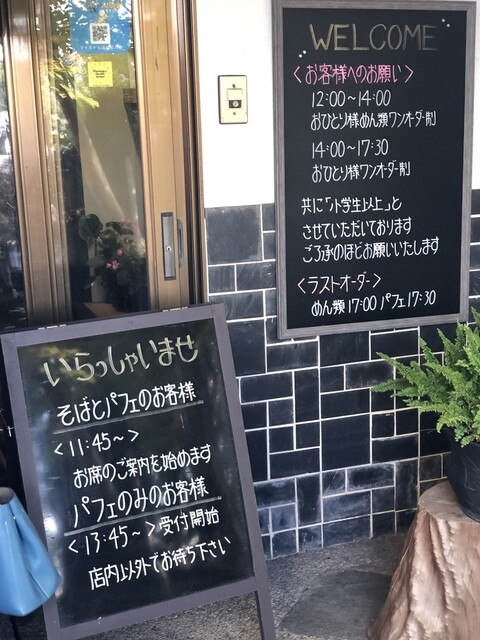 WELCOME
<お客様へのお願い>
12:00~14:00
おひとり様めん類ワンオーダー制
14:00~17:30
おひとり様ワンオーダー制
共に「小学生以上」と
させていただいております
ご了承のほどお願いいたします
<ラストオーダー>
めん類17:00 パフェ17:30
いらっしゃいませ
そばとパフェのお客様
<11:45~>
お席のご案内を始めます
パフェのみのお客様
<13:45~>受付開始
店内以外でお待ち下さい